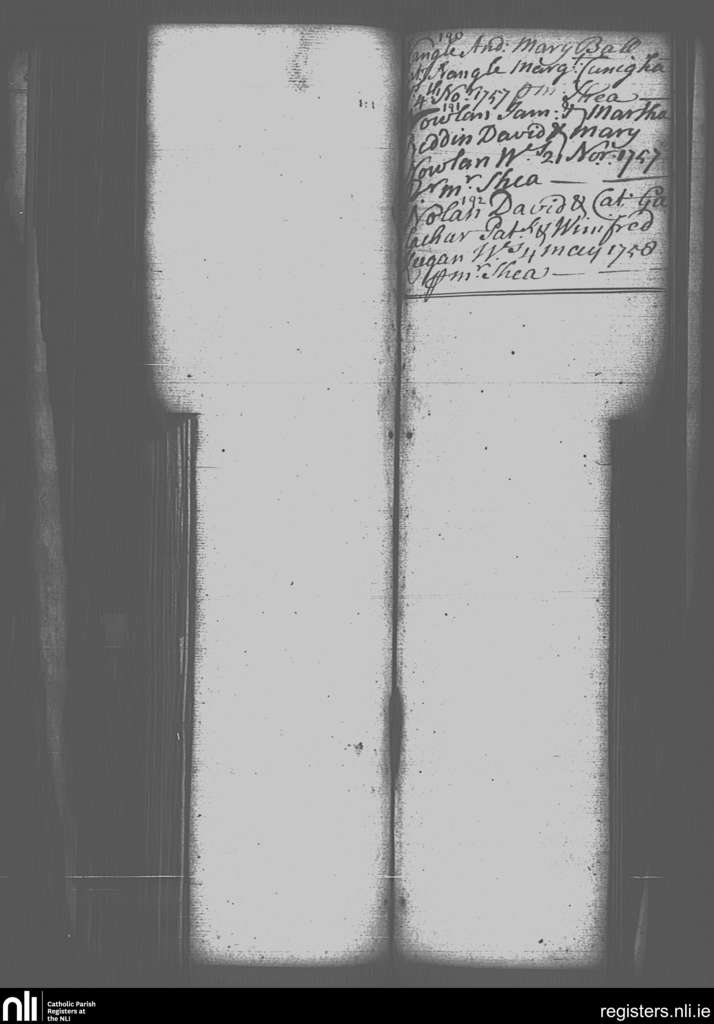 190
And: Mary Ball
Nangle Marg:t Cunigha
4th Nor: 1757 pr mr Shea
191
Nowlan Jam:s & Martha
David & Mary
Nowlan Ws 21 Nor: 1757
Pr mr Shea
192
Nolan David & Cat: Ga
Pat:k & Winifred
Ws 4 may 1758
Pr mr Shea
nli
Catholic Parish
Registers at
the NLI
registers.nli.ie